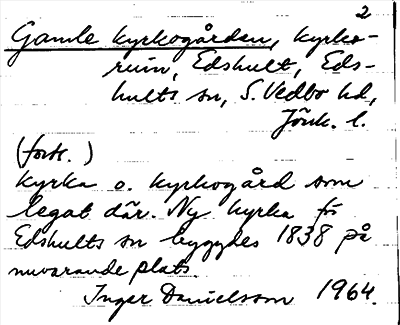 2
Gamle kyrkogården, kyrko-
ruin, Edshult, Eds-
hults sn, S. Vedbo hd,
Jönk. l.
(forts.)
Kyrka o. kyrkogård som
legat där. Ny kyrka för
Edshults sn byggdes 1838 på
nuvarande plats.
Inger Danielsson 1964.